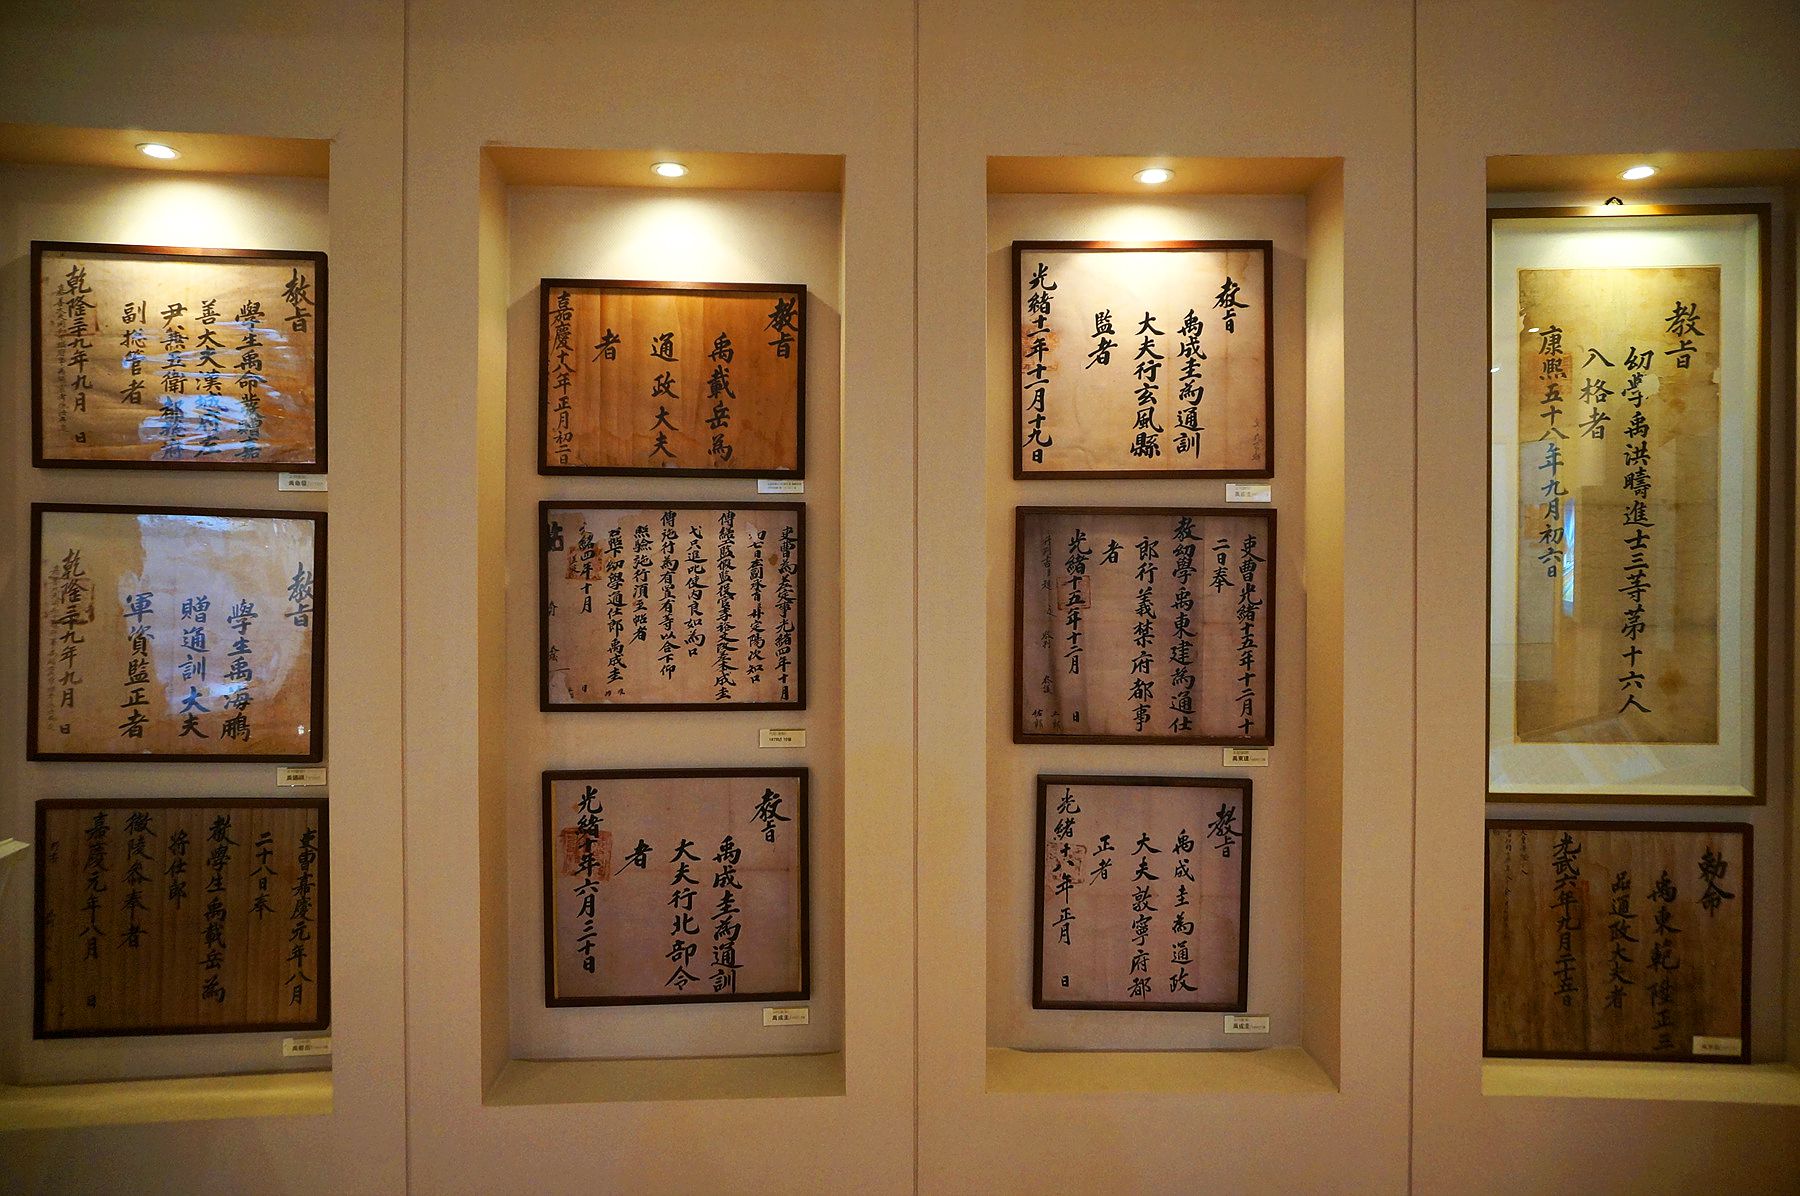 教旨
學生禹命發贈嘉
善大夫漢城府左
尹兼五衛都摠府
副摠管者
乾隆三十九年九月 日
教旨
學生禹海鵬
贈通訓大夫
軍資監正者
乾隆三十九年九月 日
吏曹嘉慶元年八月
二十八日奉
教學生禹載岳為
將仕郎
徽陵參奉者
嘉慶元年八月 日
教旨
禹載岳為
通政大夫
者
嘉慶十八年正月初二日
吏曹為差定事光緒四年十月
傳繕工監假監役官李裕文改差本成圭
傳施行為有置有等以合下仰
照驗施行須至帖者
右帖下幼學通仕郎禹成圭
光緒四年十月 日
帖
教旨
禹成圭為通訓
大夫行北部令
者
光緒十年六月三十日
禹成圭
教旨
禹成圭為通訓
大夫行玄風縣
監者
光緒十一年十一月十九日
禹成圭
吏曹光緒十五年十二月十
二日奉
教幼學禹東建為通仕
郎行義禁府都事
者
光緒十五年十二月 日
禹東建
教旨
禹成圭為通政
大夫敦寧府都
正者
光緒十八年正月 日
禹成圭
教旨
幼學禹洪疇進士三等第十六人
入格者
康熙五十八年九月初六日
勅命
禹東範陞正三
品通政大夫者
光武六年九月二十五日